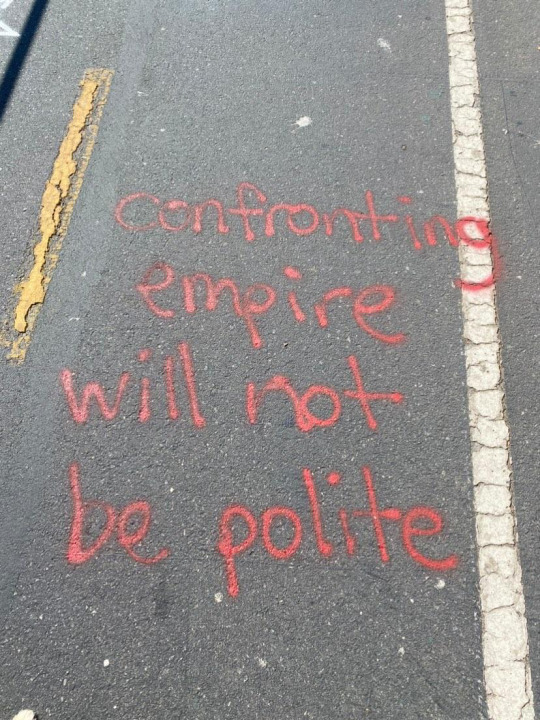 confronting
empire
will not
be polite